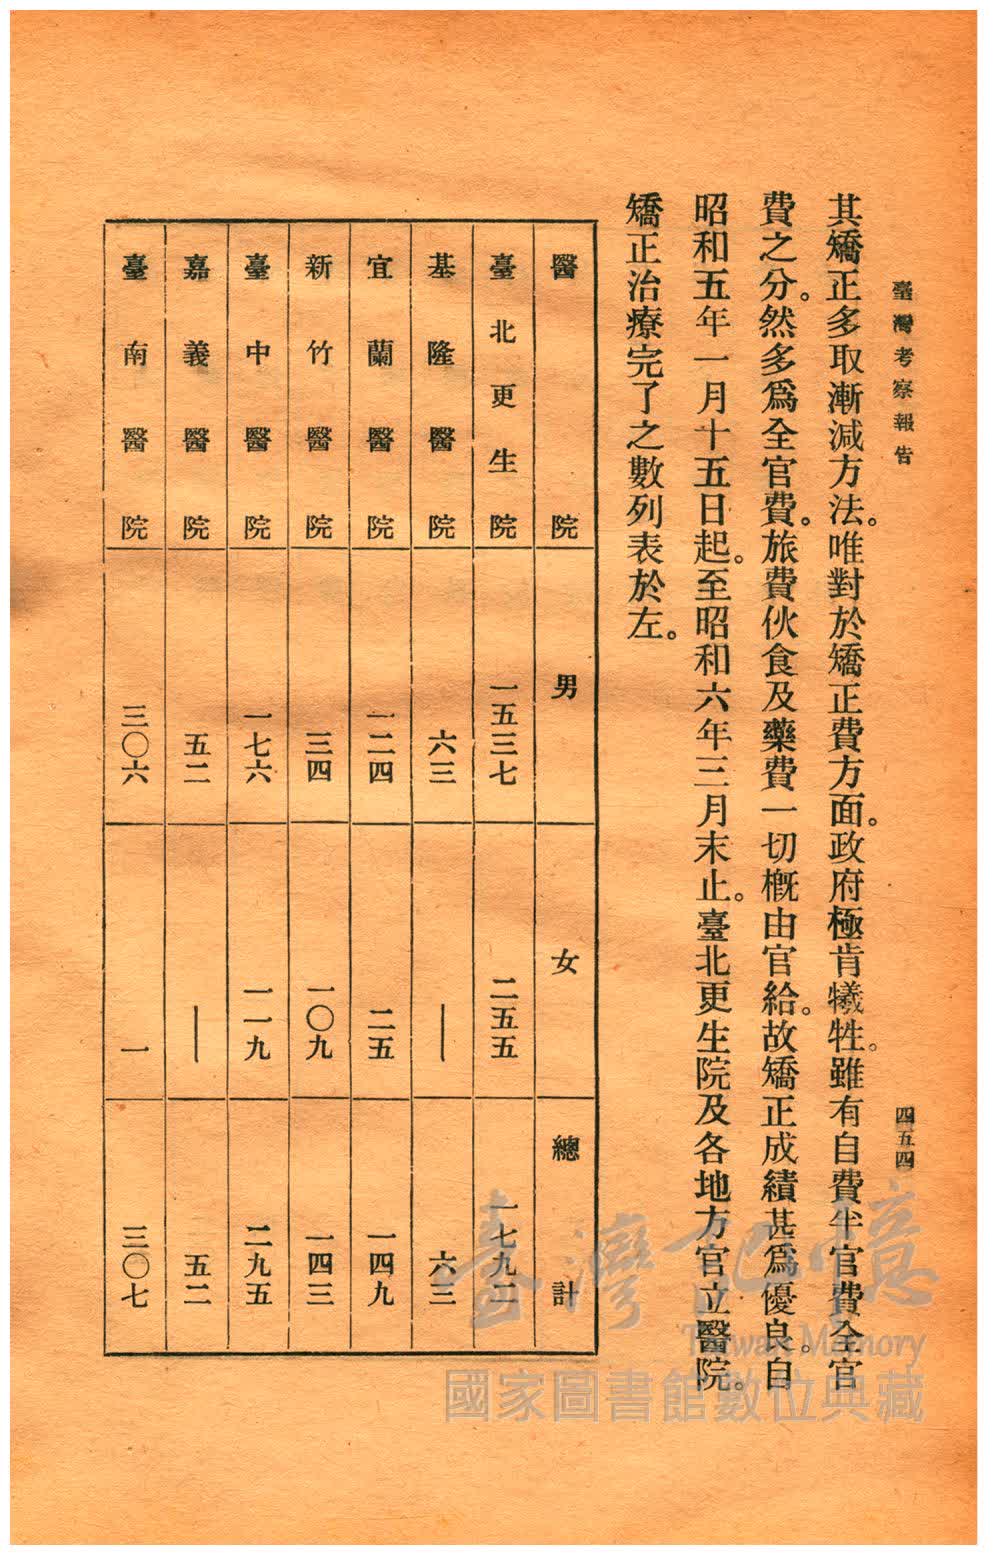 臺灣考察報告
四五四
其矯正多取漸減方法。唯對於矯正費方面。政府極肯犧牲。雖有自費半官費全官
費之分。然多爲全官費。旅費伙食及藥費一切槪由官給。故矯正成績甚爲優良。自
昭和五年一月十五日起。至昭和六年三月末止。臺北更生院及各地方官立醫院。
矯正治療完了之數列表於左。
醫院 男 女 總計
臺北更生院 一五三七 二五五 一七九二
基隆醫院 六三 — 六三
宜蘭醫院 一二四 二五 一四九
新竹醫院 三四 一〇九 一四三
臺中醫院 一七六 一一九 二九五
嘉義醫院 五二 — 五二
臺南醫院 三〇六 一 三〇七
臺灣記憶
Taiwan Memory
國家圖書館數位典藏